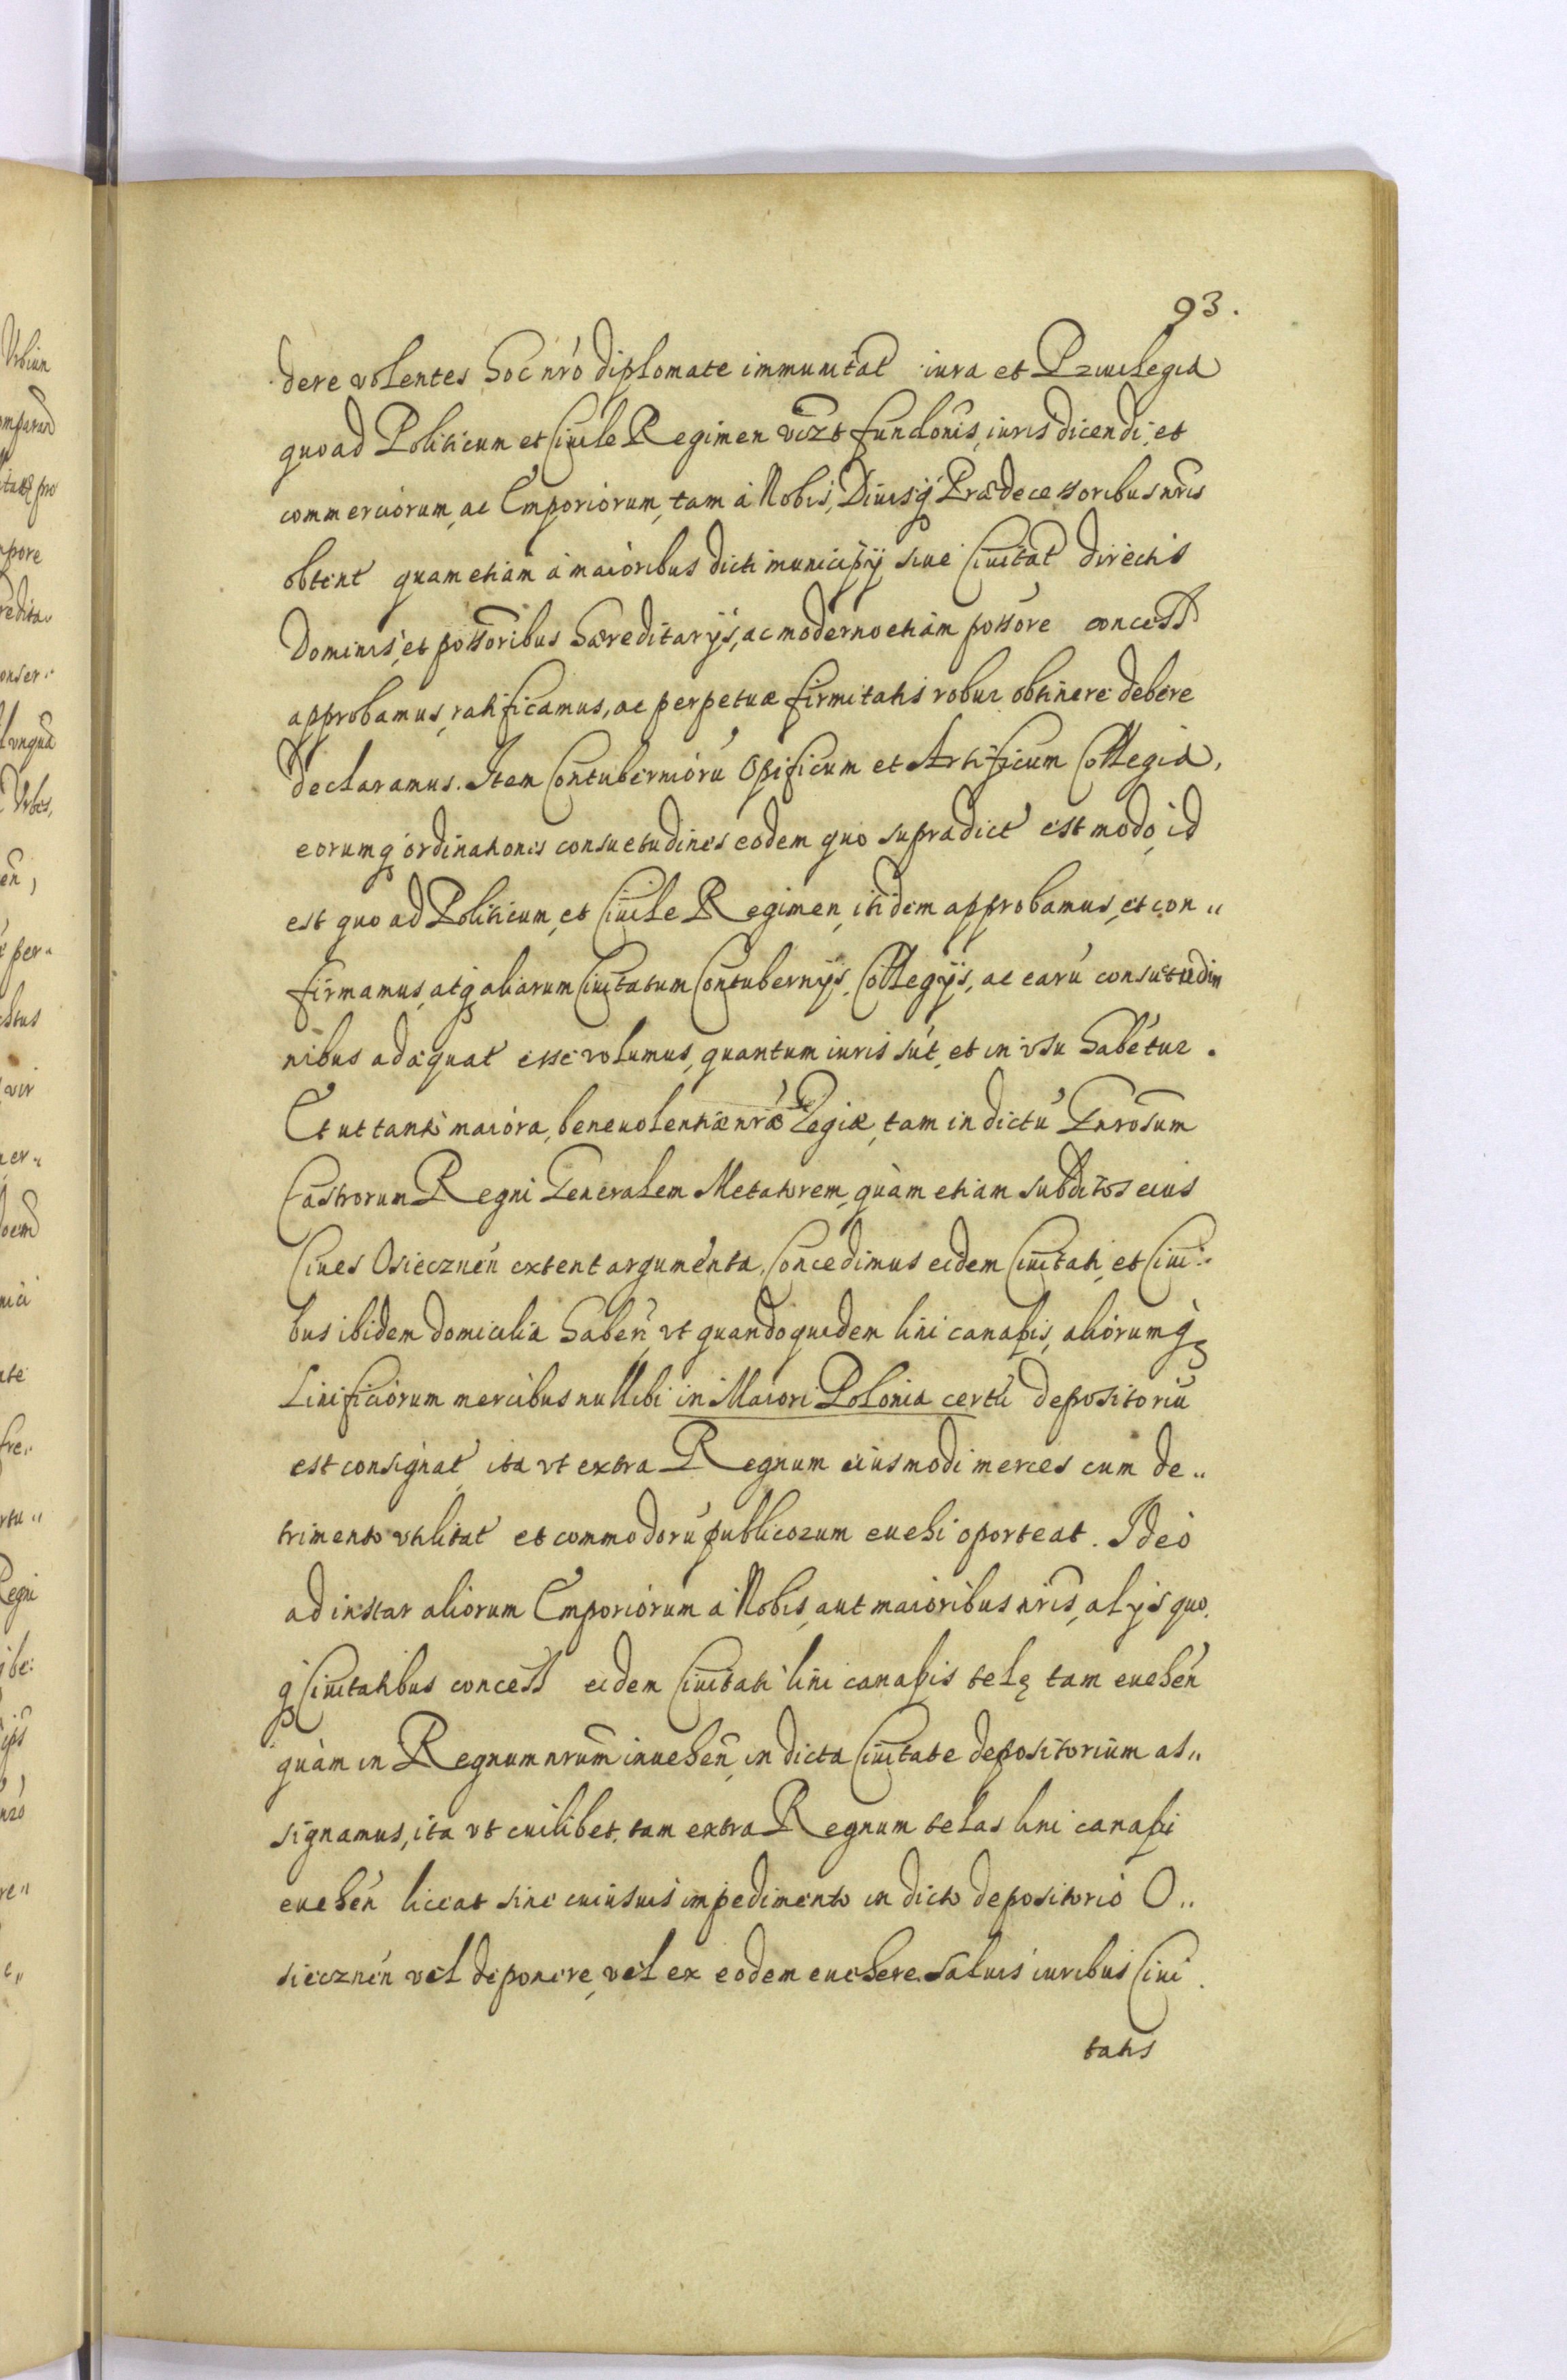 93.
dere volentes hoc nró diplomate immunitat iura et Privilegia
quoad Politicum et Ciuile Regimen vizt fundonis, iuris dicendi, et
commerciorum, ac Emporiorum, tam à Nobis, Diuisq Prædecessoribus nris
obtent quam etiam à maioribus dicti municipÿ siue Ciuitat directis
Dominis, et possoribus hæreditarÿs, ac moderno etiam possore concess
approbamus, ratificamus, ac perpetuæ firmitatis robur obtinere debere
declaramus. Item Contuberniorú Opificum et Artificum Collegia,
eorumq ordinationes consuetudines eodem quo supradict est modo, id
est quo ad Politicum, et Ciuile Regimen, itidem approbamus, et con„
firmamus, atq aliarum Ciuitatum Contubernÿs, Collegÿs, ac earú consuetudin
nibus adæquat esse volumus, quantum iuris sút, et in vsu habétur.
Et ut tanto maiora, beneuolentiæ nræ Regiæ, tam in dictú Gnrosum
Castrorum Regni Generalem Metatorem, quàm etiam subditos eius
Ciues Osiecznén extent argumenta, Concedimus eidem Ciuitati, et Ciui„
bus ibidem domicilia habeñ, vt quandoquidem lini canapis, aliorumq
Linificiorum mercibus nullibi in Maiori Polonia certú depositoriú
est consignat, ita vt extra Regnum eiusmodi merces cum de„
trimento vtilitat et commodorú publicorum euehi oporteat. Ideò
ad instar aliorum Emporiorum à Nobis, aut maioribus nris, alÿs quo,
q Ciuitatibus concess eidem Ciuitati lini canapis telę tam eueheń
quàm in Regnum nrum inueheñ, in dicta Ciuitate depositorium as„
signamus, ita vt cuilibet, tam extra Regnum telas lini canapi
eueheń liceat sine cuiusuis impedimento in dicto depositorio O„
siecznén vel deponere, vel ex eodem euehere. Saluis iuribus Ciui
tatis